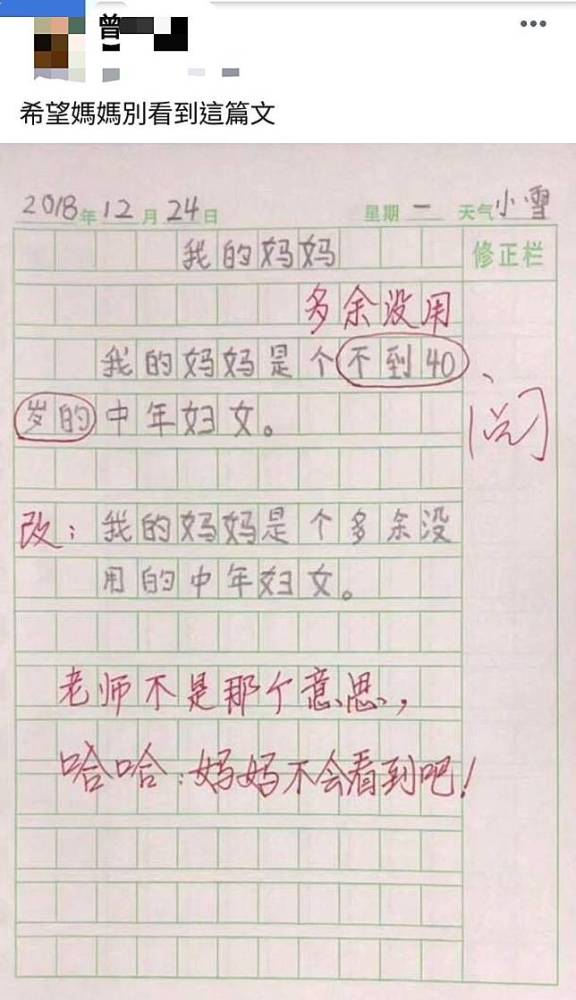 曾
希望媽媽別看到這篇文
2018年12月24日 星期一 天气小雪
我的妈妈 修正栏
多余没用
我的妈妈是个不到40
岁的中年妇女。
阅
改：我的妈妈是个多余没
用的中年妇女。
老师不是那个意思，
哈哈：妈妈不会看到吧！